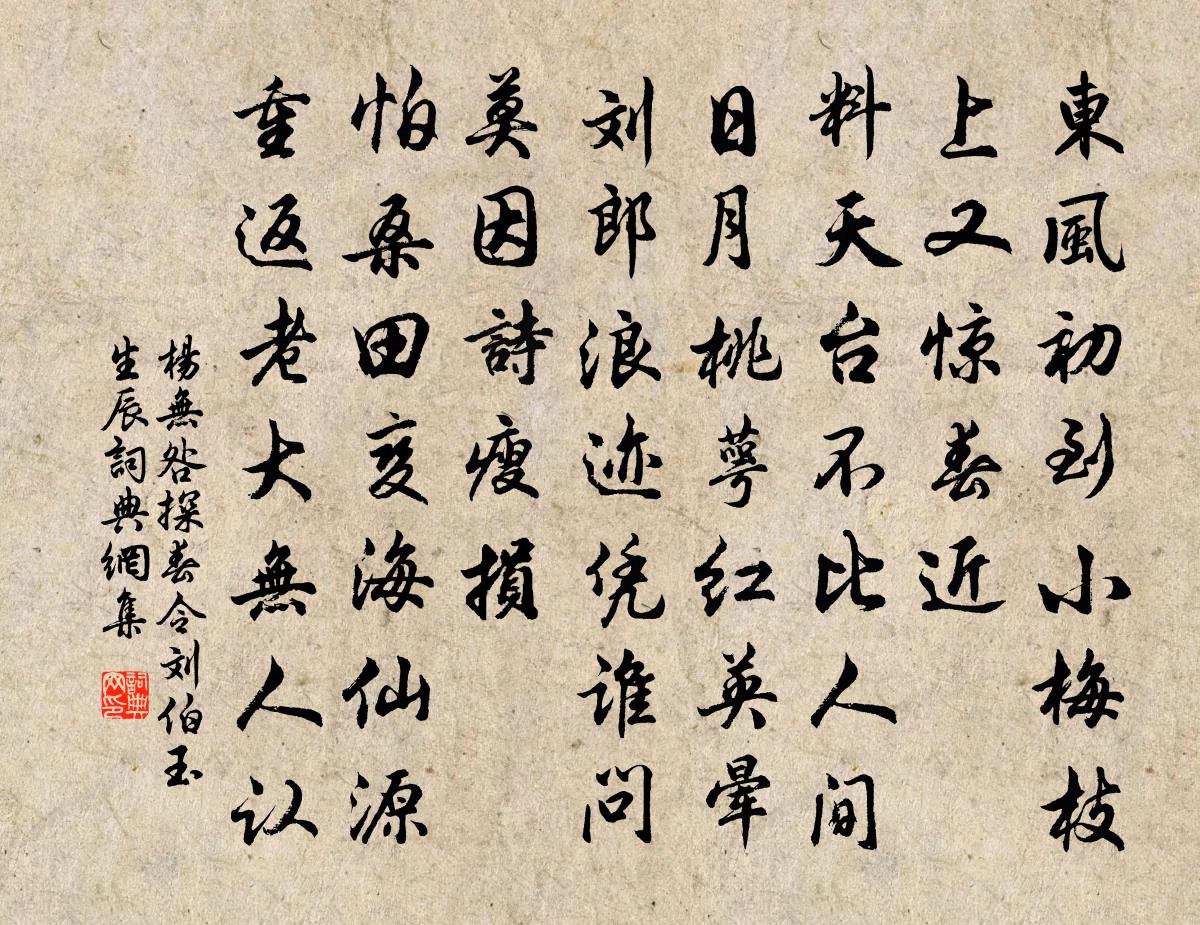 東風初到小梅枝
上又惊春近
料天台不比人间
日月桃萼红英晕
刘郎浪迹凭谁问
莫因詩瘦損
怕桑田变海仙源
重返老大無人认
楊無咎探春令刘伯玉
生辰詞典網集
詞典网印